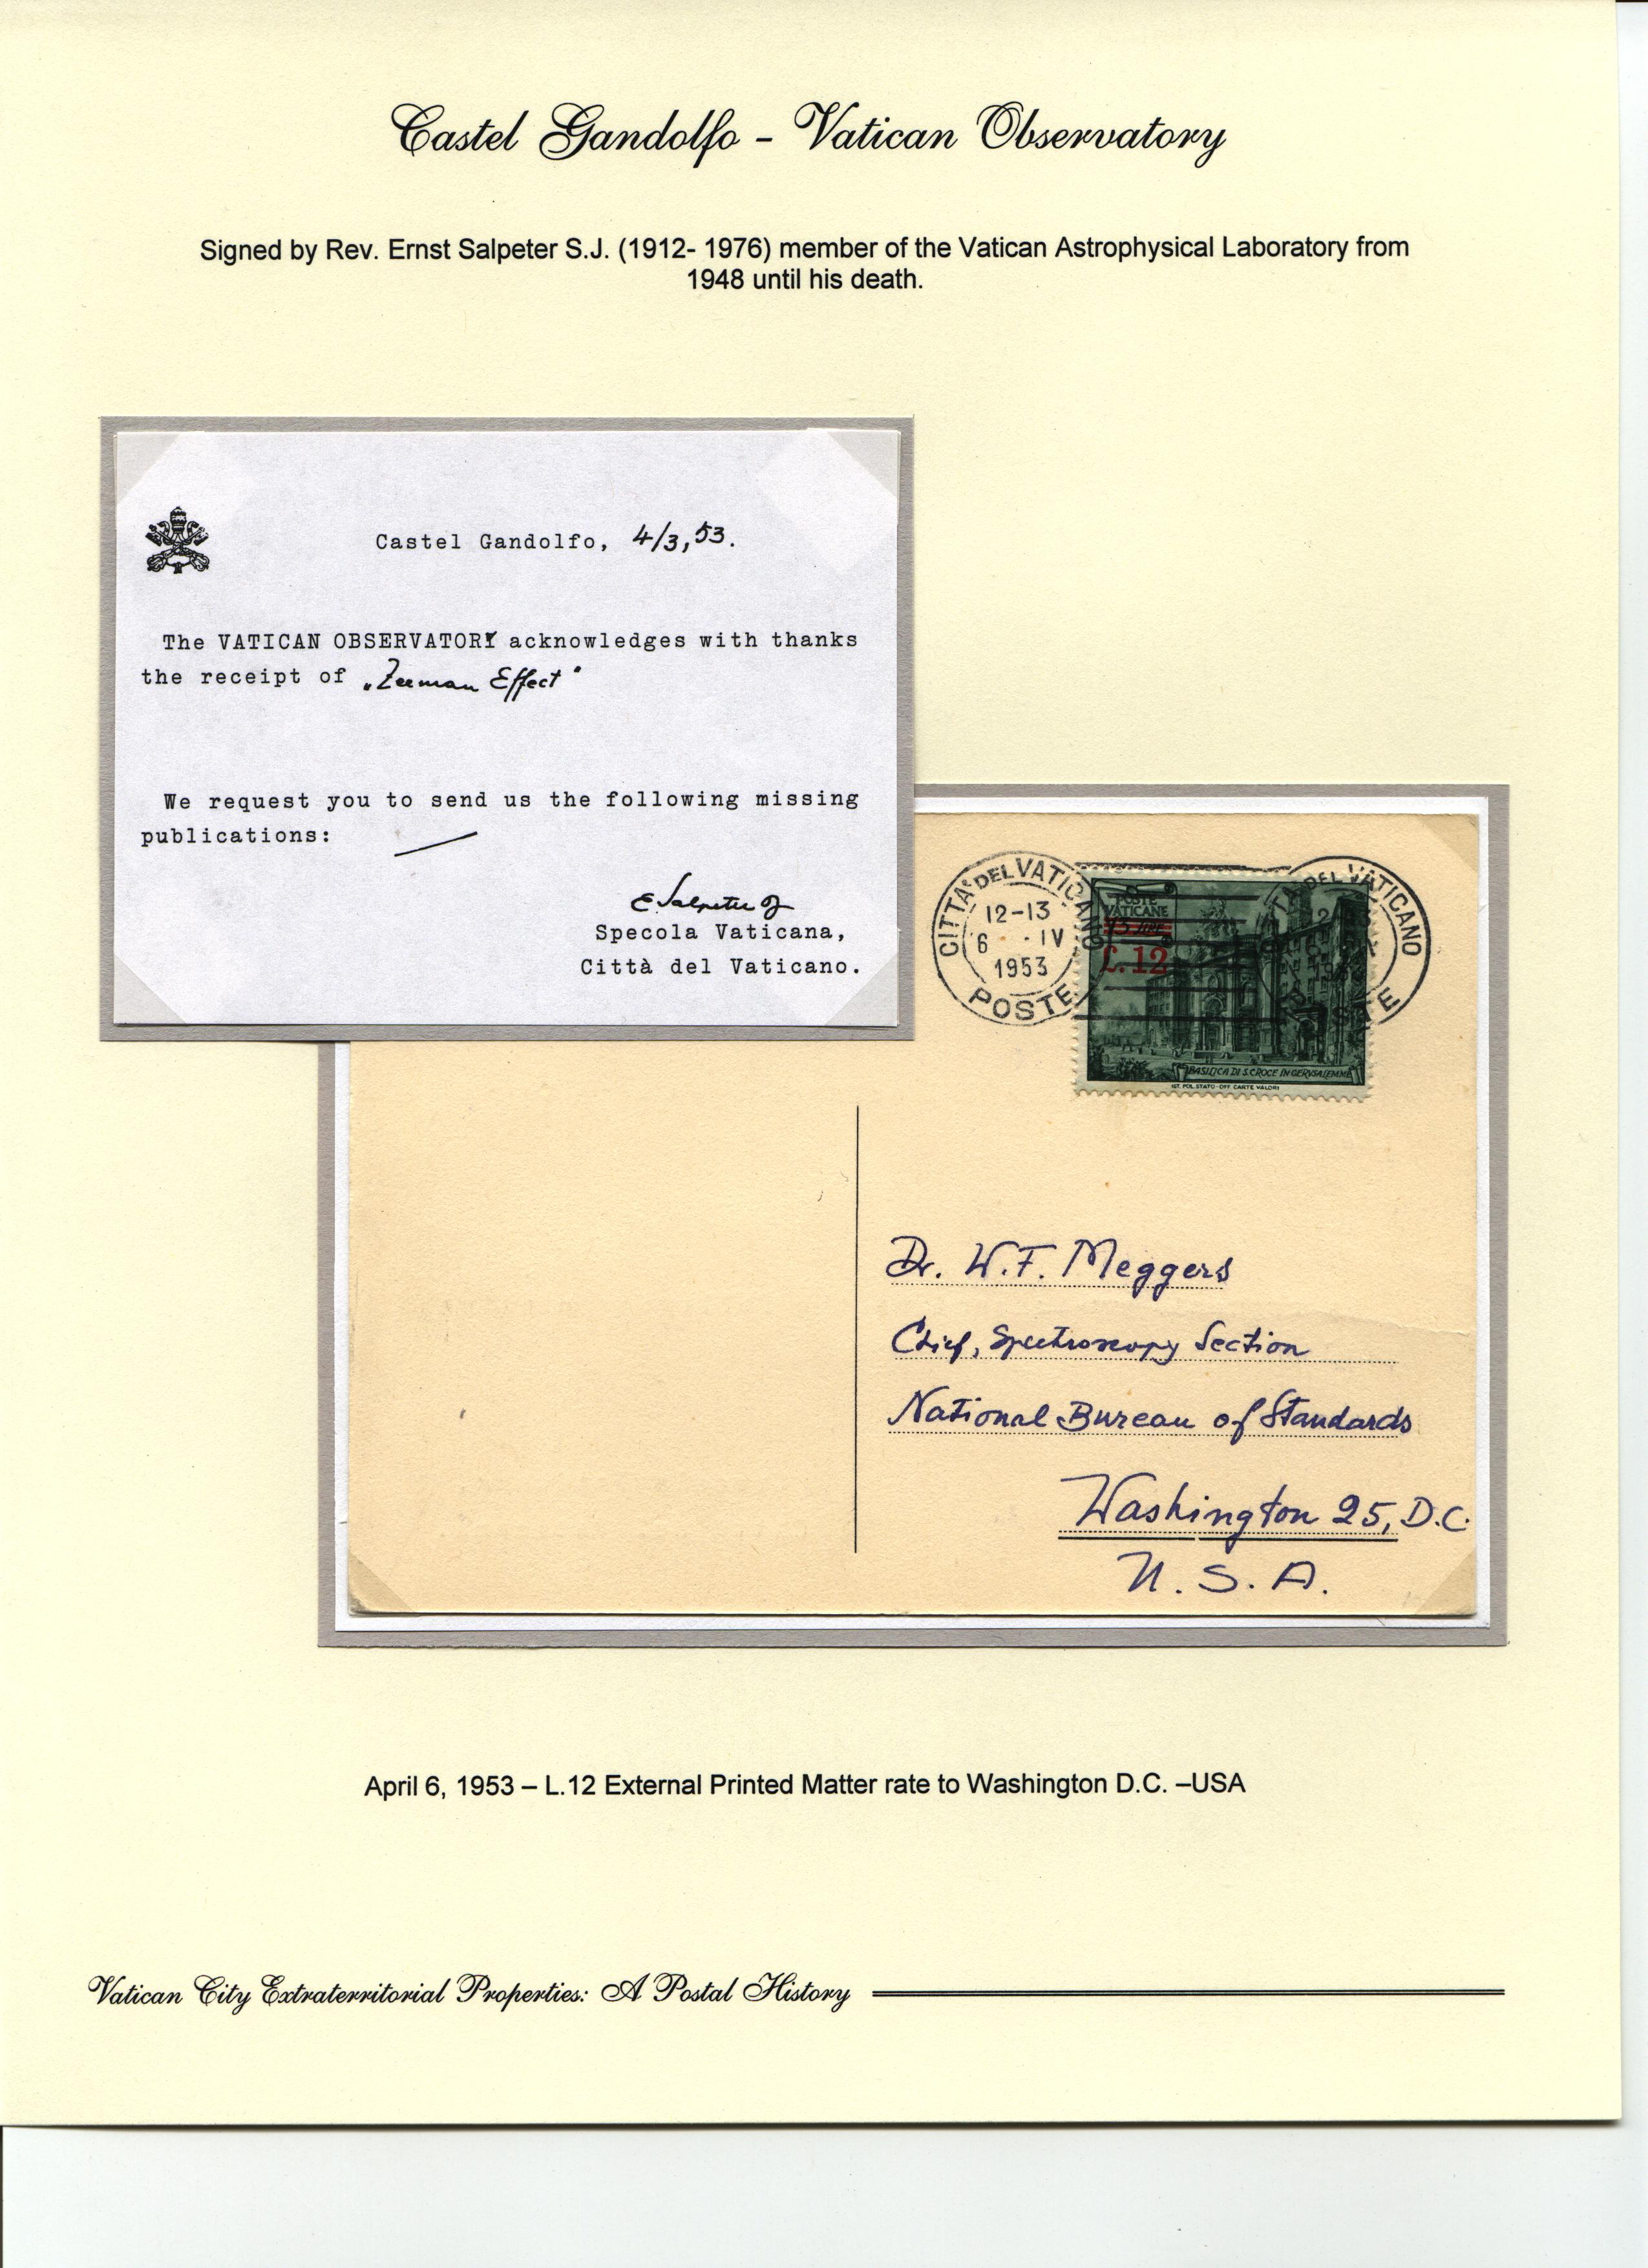 Castel Gandolfo - Vatican Observatory
Signed by Rev. Ernst Salpeter S.J. (1912- 1976) member of the Vatican Astrophysical Laboratory from
1948 until his death.
Castel Gandolfo, 4/3,53.
The VATICAN OBSERVATORY acknowledges with thanks
the receipt of „Zeeman Effect"
We request you to send us the following missing
publications:
E. Salpeter SJ
Specola Vaticana,
Città del Vaticano.
CITTA' DEL VATICANO
12-13
6 · IV
1953
POSTE
POSTE
VATICANE
L. 12
BASILICA DI S. CROCE IN GERVSALEMME
IST. POL. STATO - OFF. CARTE VALORI
DEL VATICANO
Dr. W.F. Meggers
Chief, Spectroscopy Section
National Bureau of Standards
Washington 25, D.C.
U. S. A.
April 6, 1953 – L.12 External Printed Matter rate to Washington D.C. –USA
Vatican City Extraterritorial Properties: A Postal History